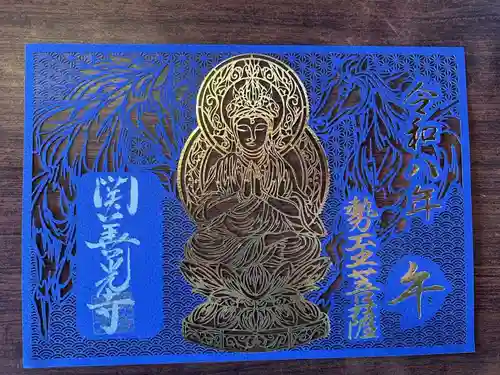 令和八年
午
勢至菩薩
関善光寺